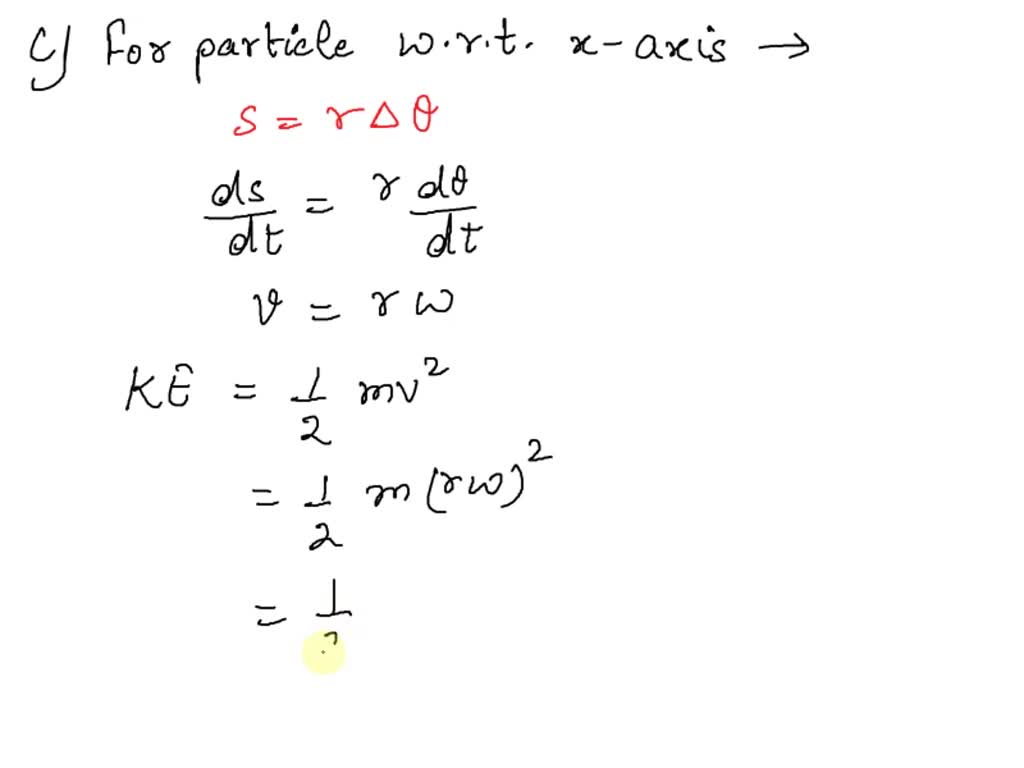 c) For particle w.r.t. x-axis →
s = r Δ θ
ds/dt = r dθ/dt
v = r ω
KE = 1/2 mv²
= 1/2 m(rω)²
= 1/2